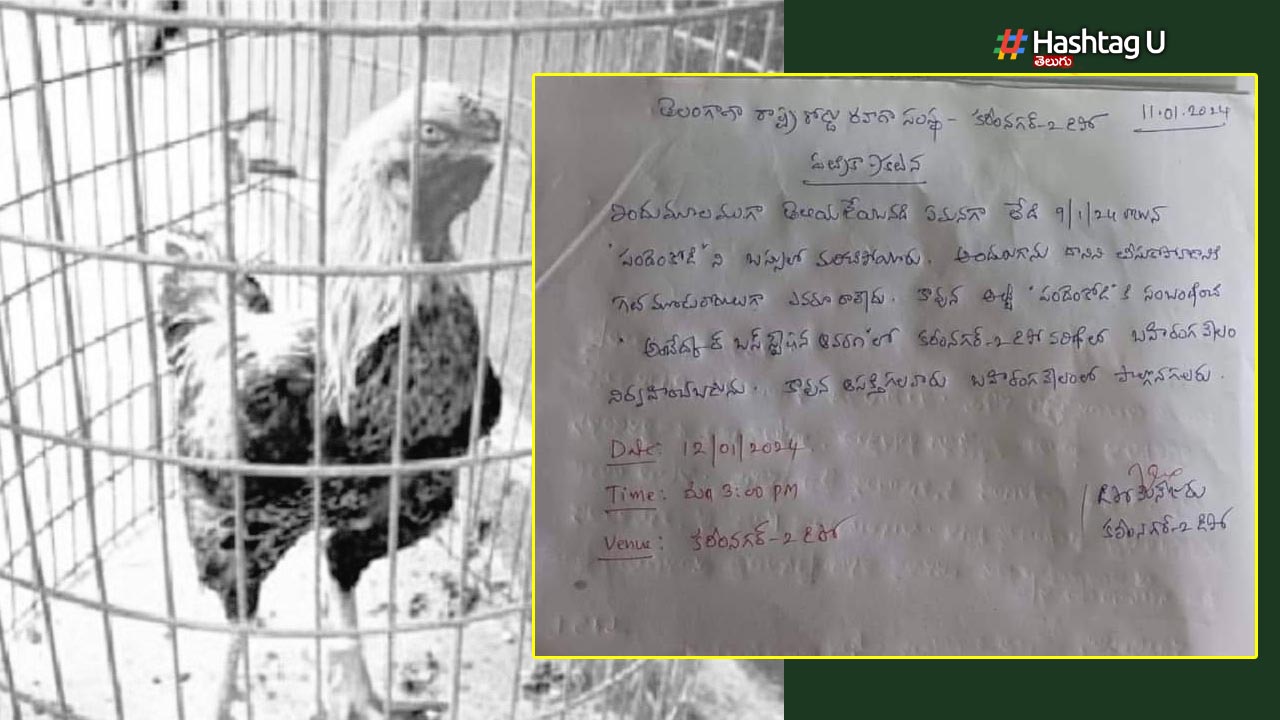 # Hashtag U
తెలుగు
తెలంగాణా రాష్ట్ర రోడ్డు రవాణా సంస్థ - కరీంనగర్-2 డిపో 11.01.2024
పత్రికా ప్రకటన
ఇందుమూలముగా తెలియజేయునది ఏమనగా తేది 9/1/24 రోజున
"పందెంకోడి" ని బస్సులో మరిచిపోయారు. అందులకుగాను దానిని తీసుకోవడానికి
గత మూడురోజులుగా ఎవరూ రాలేదు. కావున అట్టి "పందెంకోడి" కి సంబంధించి
" అంబేద్కర్ బస్ స్టేషన్ ఆవరణ"లో కరీంనగర్-2 డిపో పరిధిలో బహిరంగ వేలం
నిర్వహించబడును. కావున ఆసక్తిగలవారు బహిరంగ వేలంలో పాల్గొనగలరు.
Date: 12/01/2024
Time: మ॥ 3:00 PM
Venue: కరీంనగర్-2 డిపో
డిపో మేనేజరు
కరీంనగర్-2 డిపో